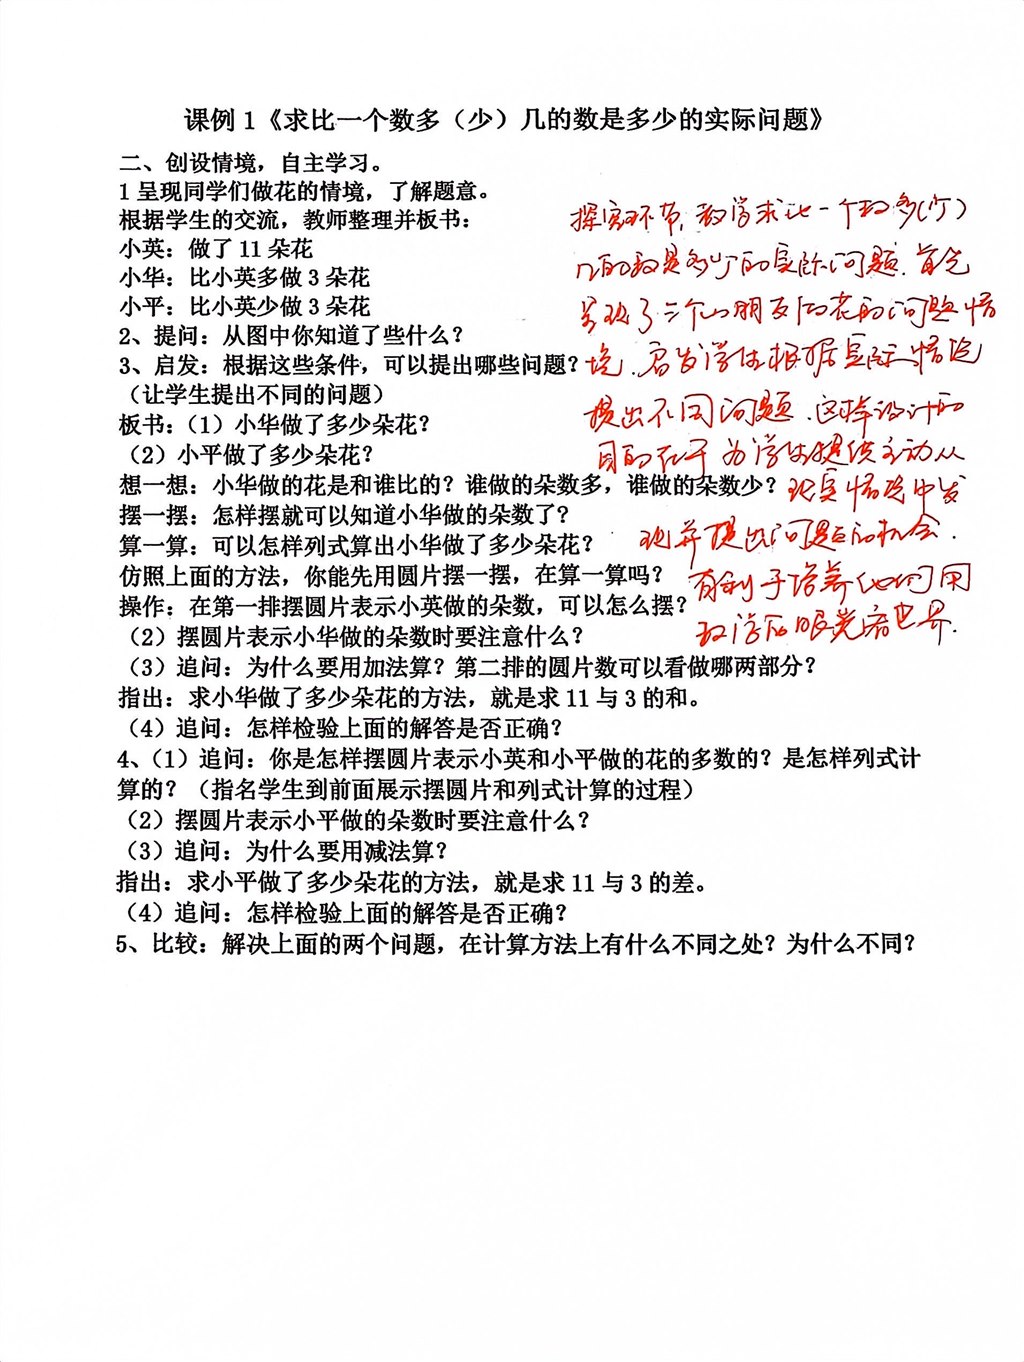 课例 1《求比一个数多（少）几的数是多少的实际问题》
二、创设情境，自主学习。
1 呈现同学们做花的情境，了解题意。
根据学生的交流，教师整理并板书：
小英：做了 11 朵花
小华：比小英多做 3 朵花
小平：比小英少做 3 朵花
2、提问：从图中你知道了些什么？
3、启发：根据这些条件，可以提出哪些问题？
（让学生提出不同的问题）
板书：（1）小华做了多少朵花？
（2）小平做了多少朵花？
想一想：小华做的花是和谁比的？谁做的朵数多，谁做的朵数少？
摆一摆：怎样摆就可以知道小华做的朵数了？
算一算：可以怎样列式算出小华做了多少朵花？
仿照上面的方法，你能先用圆片摆一摆，在算一算吗？
操作：在第一排摆圆片表示小英做的朵数，可以怎么摆？
（2）摆圆片表示小华做的朵数时要注意什么？
（3）追问：为什么要用加法算？第二排的圆片数可以看做哪两部分？
指出：求小华做了多少朵花的方法，就是求 11 与 3 的和。
（4）追问：怎样检验上面的解答是否正确？
4、（1）追问：你是怎样摆圆片表示小英和小平做的花的多数的？是怎样列式计
算的？（指名学生到前面展示摆圆片和列式计算的过程）
（2）摆圆片表示小平做的朵数时要注意什么？
（3）追问：为什么要用减法算？
指出：求小平做了多少朵花的方法，就是求 11 与 3 的差。
（4）追问：怎样检验上面的解答是否正确？
5、比较：解决上面的两个问题，在计算方法上有什么不同之处？为什么不同？
探究环节，教学求比一个数多（少）
几的数是多少的实际问题．首先
呈现了三个小朋友做花的问题情
境．启发学生根据实际情境
提出不同问题．这样设计的
目的在于为学生提供主动从
现实情境中发
现并提出问题的机会．
有利于培养他们用
数学的眼光看世界．